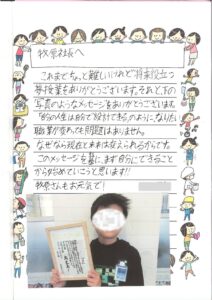 牧原社長へ
これまでちょっと難しいけれど将来役立つ
授業をありがとうございます。そあと、下の
写真のようなメッセージをありがとうございます。
「自分の人生は自分で設計できる」のように、なりたい
職業が変わっても問題はありません。
なぜなら現在と未来は変えられるからです。
このメッセージを基に、まず自分にできること
から始めていこうと思います!!
牧原さんもお元気で!